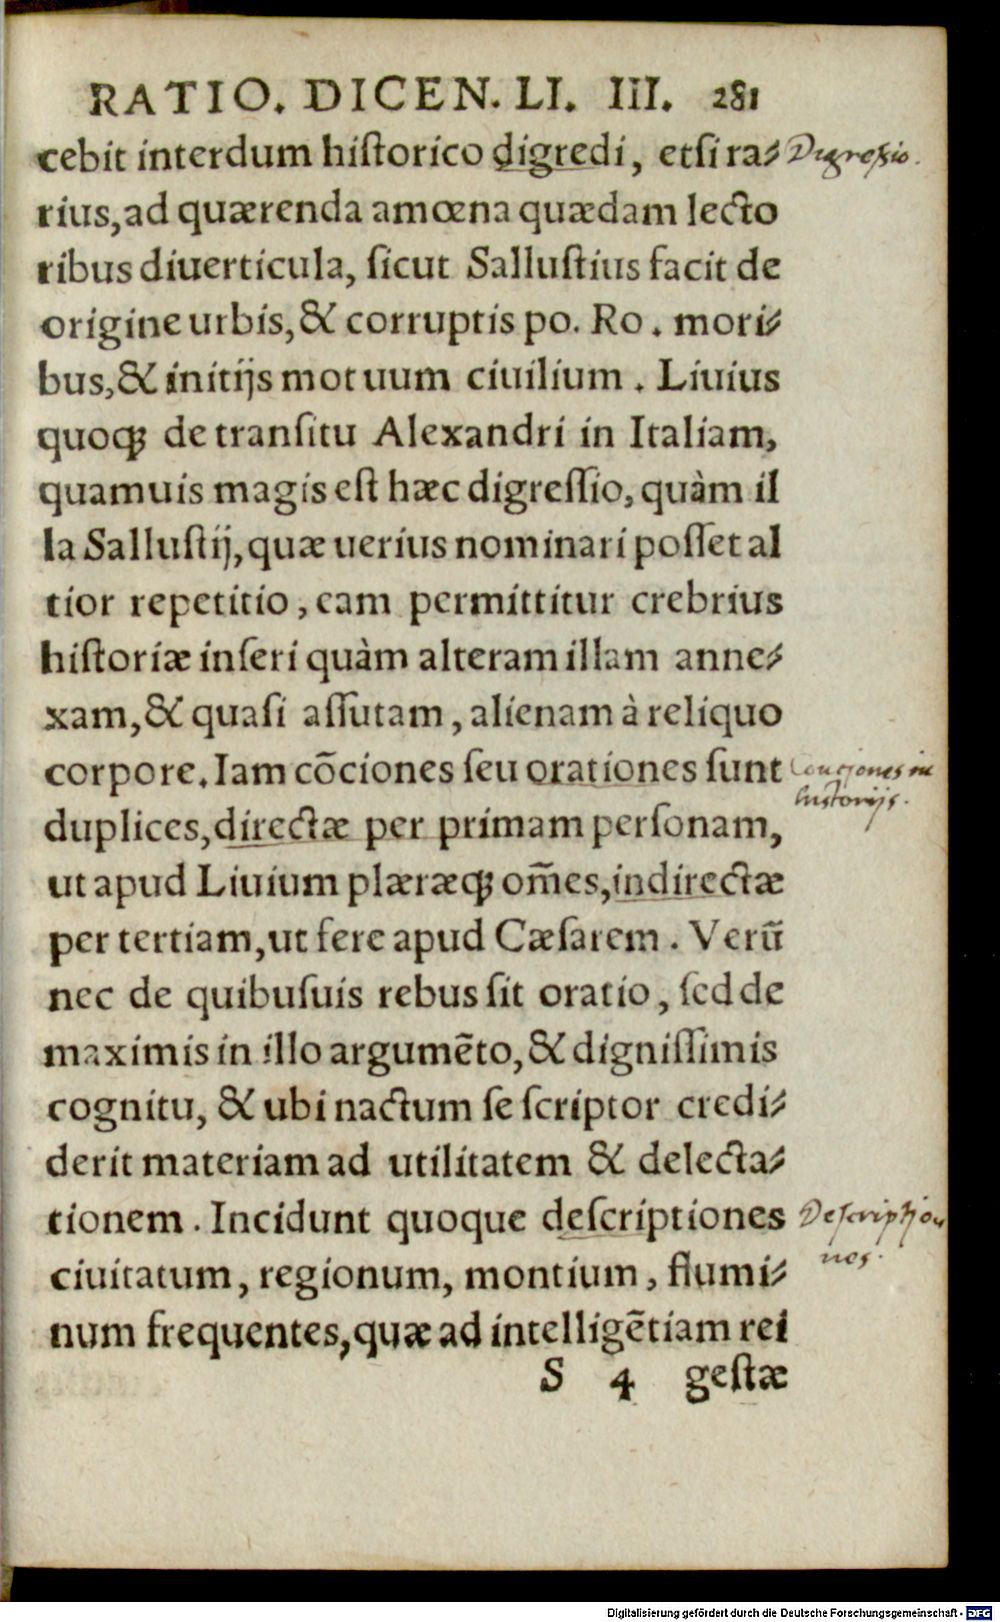 RATIO. DICEN. LI. III. 281
cebit interdum hiſtorico digredi, etſi ra⸗ Digressio.
rius, ad quærenda amœna quædam lecto
ribus diuerticula, ſicut Salluſtius facit de
origine urbis, & corruptis po. Ro. mori⸗
bus, & initijs motuum ciuilium. Liuius
quoq; de tranſitu Alexandri in Italiam,
quamuis magis eſt hæc digreſſio, quàm il
la Salluſtij, quæ uerius nominari poſſet al
tior repetitio, eam permittitur crebrius
hiſtoriæ inſeri quàm alteram illam anne⸗
xam, & quaſi aſſutam, alienam à reliquo
corpore. Iam cōciones ſeu orationes ſunt Conciones in
historijs.
duplices, directæ per primam perſonam,
ut apud Liuium plæræq; om̄es, indirectæ
per tertiam, ut fere apud Cæſarem. Verū
nec de quibuſuis rebus ſit oratio, ſed de
maximis in illo argumēto, & digniſſimis
cognitu, & ubi nactum ſe ſcriptor credi⸗
derit materiam ad utilitatem & delecta⸗
tionem. Incidunt quoque deſcriptiones Deſcriptio
nes.
ciuitatum, regionum, montium, flumi⸗
num frequentes, quæ ad intelligētiam rei
S 4 geſtæ
Digitalisierung gefördert durch die Deutsche Forschungsgemeinschaft - DFG